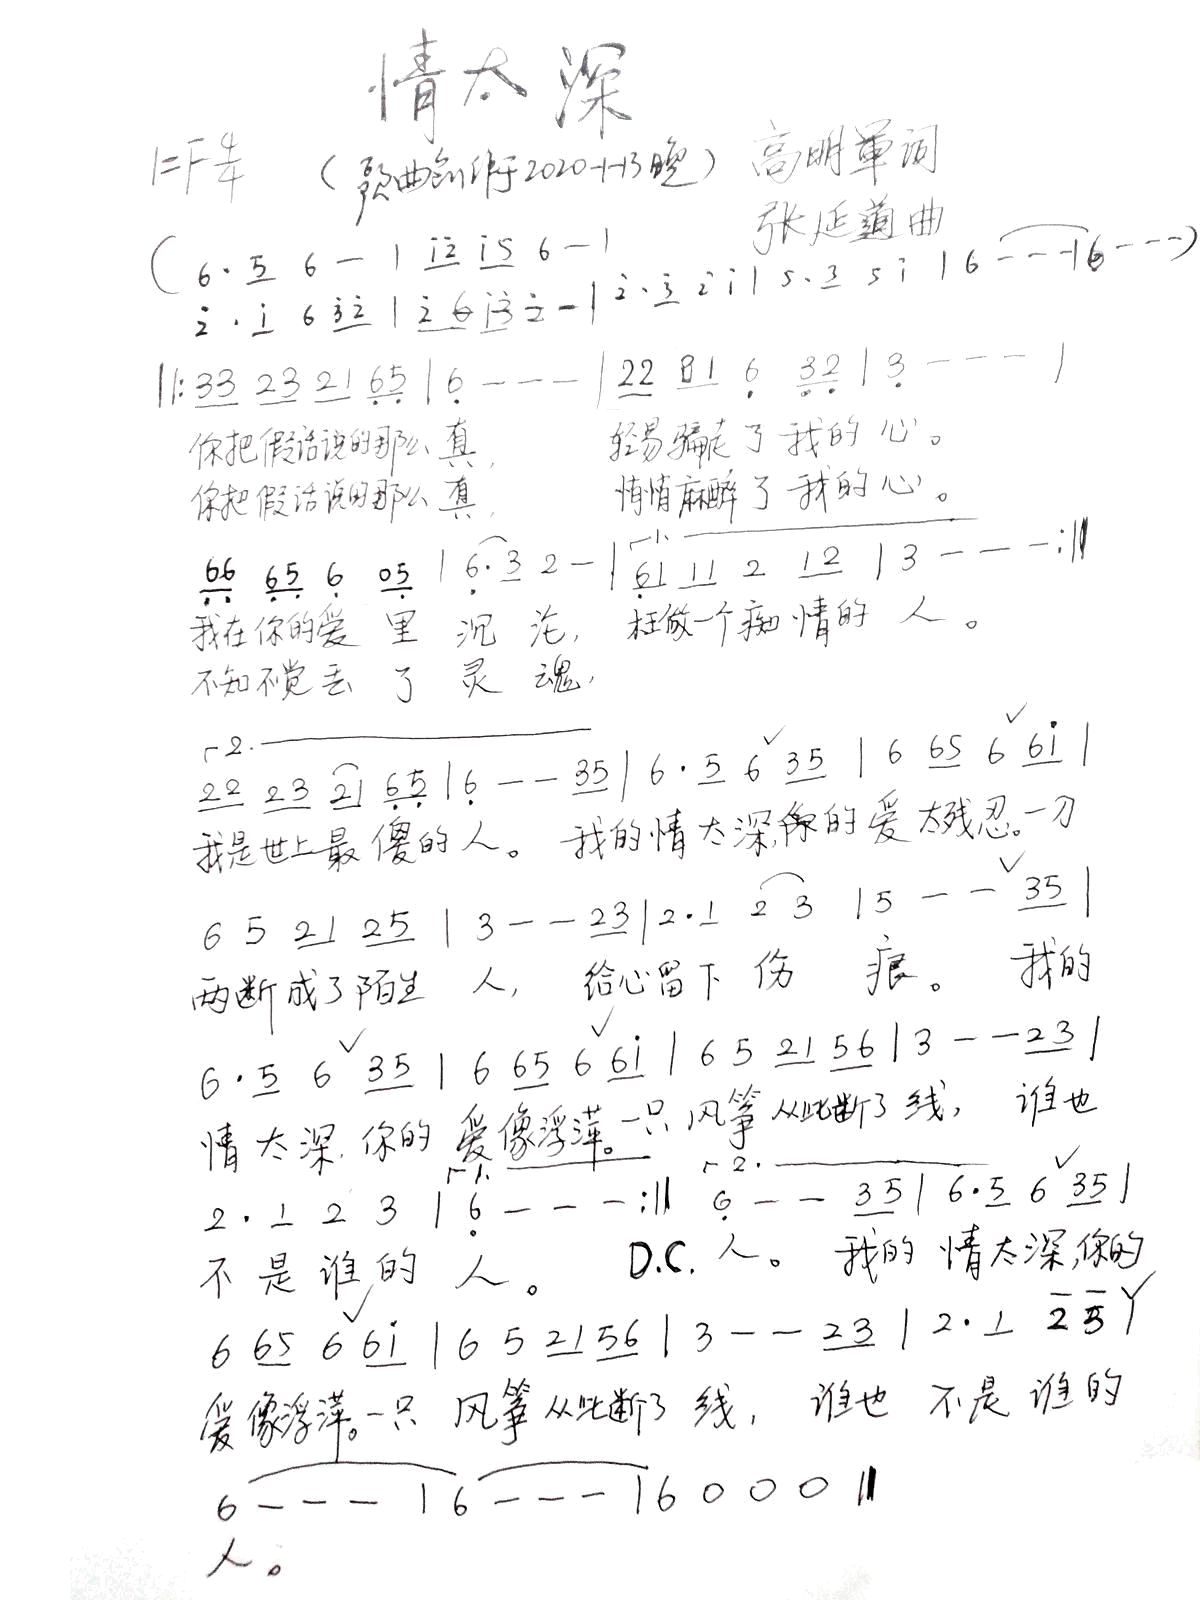 情太深
1=F 4/4 (歌曲创作于2020-1-13晚) 高明军词
张延道曲
(6·5 6 - | i2 i5 6 - |
2·i 6 32 | 2 6 i3 2 - | 2·3 2 i | 5·3 5 i | 6 - - - | 6 - - -)
||: 33 23 21 65 | 6 - - - | 22 31 6 32 | 3 - - - |
你把假话说的那么真, 轻易骗走了我的心。
你把假话说的那么真, 悄悄麻醉了我的心。
66 65 6 05 | 6·3 2 - | 1. 61 11 2 12 | 3 - - - :||
我在你的爱里沉沦, 枉做一个痴情的人。
不知不觉丢了灵魂,
2.
22 23 21 65 | 6 - - 35 | 6·5 6 35 | 6 65 6 6i |
我是世上最傻的人。 我的情太深,你的爱太残忍。一刀
6 5 21 25 | 3 - - 23 | 2·1 2 3 | 5 - - 35 |
两断成了陌生人, 给心留下伤痕。 我的
6·5 6 35 | 6 65 6 6i | 6 5 21 56 | 3 - - 23 |
情太深,你的爱像浮萍。一只风筝从此断了线, 谁也
1. 2.
2·1 2 3 | 6 - - - :|| 6 - - 35 | 6·5 6 35 |
不是谁的人。 D.C. 人。 我的情太深,你的
6 65 6 6i | 6 5 21 56 | 3 - - 23 | 2·1 2 3 |
爱像浮萍。一只风筝从此断了线, 谁也不是谁的
6 - - - | 6 - - - | 6 0 0 0 ||
人。